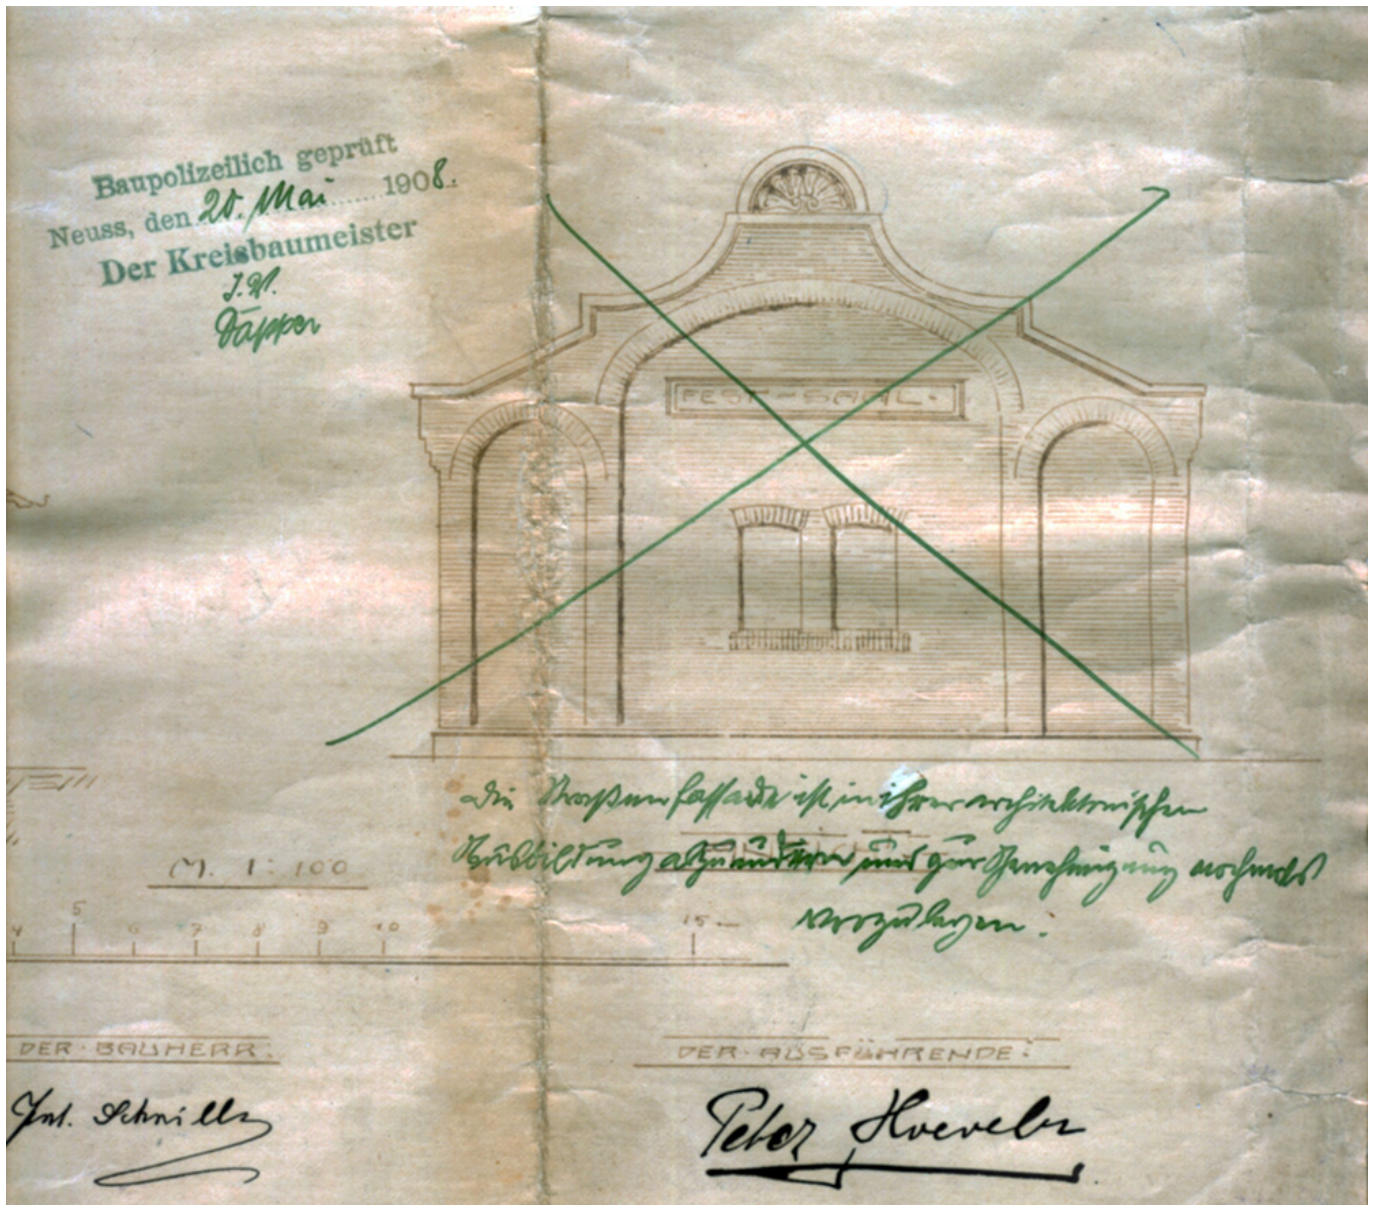 Baupolizeilich geprüft
Neuss, den 20. Mai 1908.
Der Kreisbaumeister
J.V.
Däpper
FEST-SAAL.
Die Straßenfassade ist in ihrer architektonischen
Ausbildung abzuändern und zur Genehmigung nochmals
vorzulegen.
M. 1:100
4 5 6 7 8 9 10 15
DER BAUHERR.
DER AUSFÜHRENDE:
Jnt. Schmitz
Peter Hoeveler